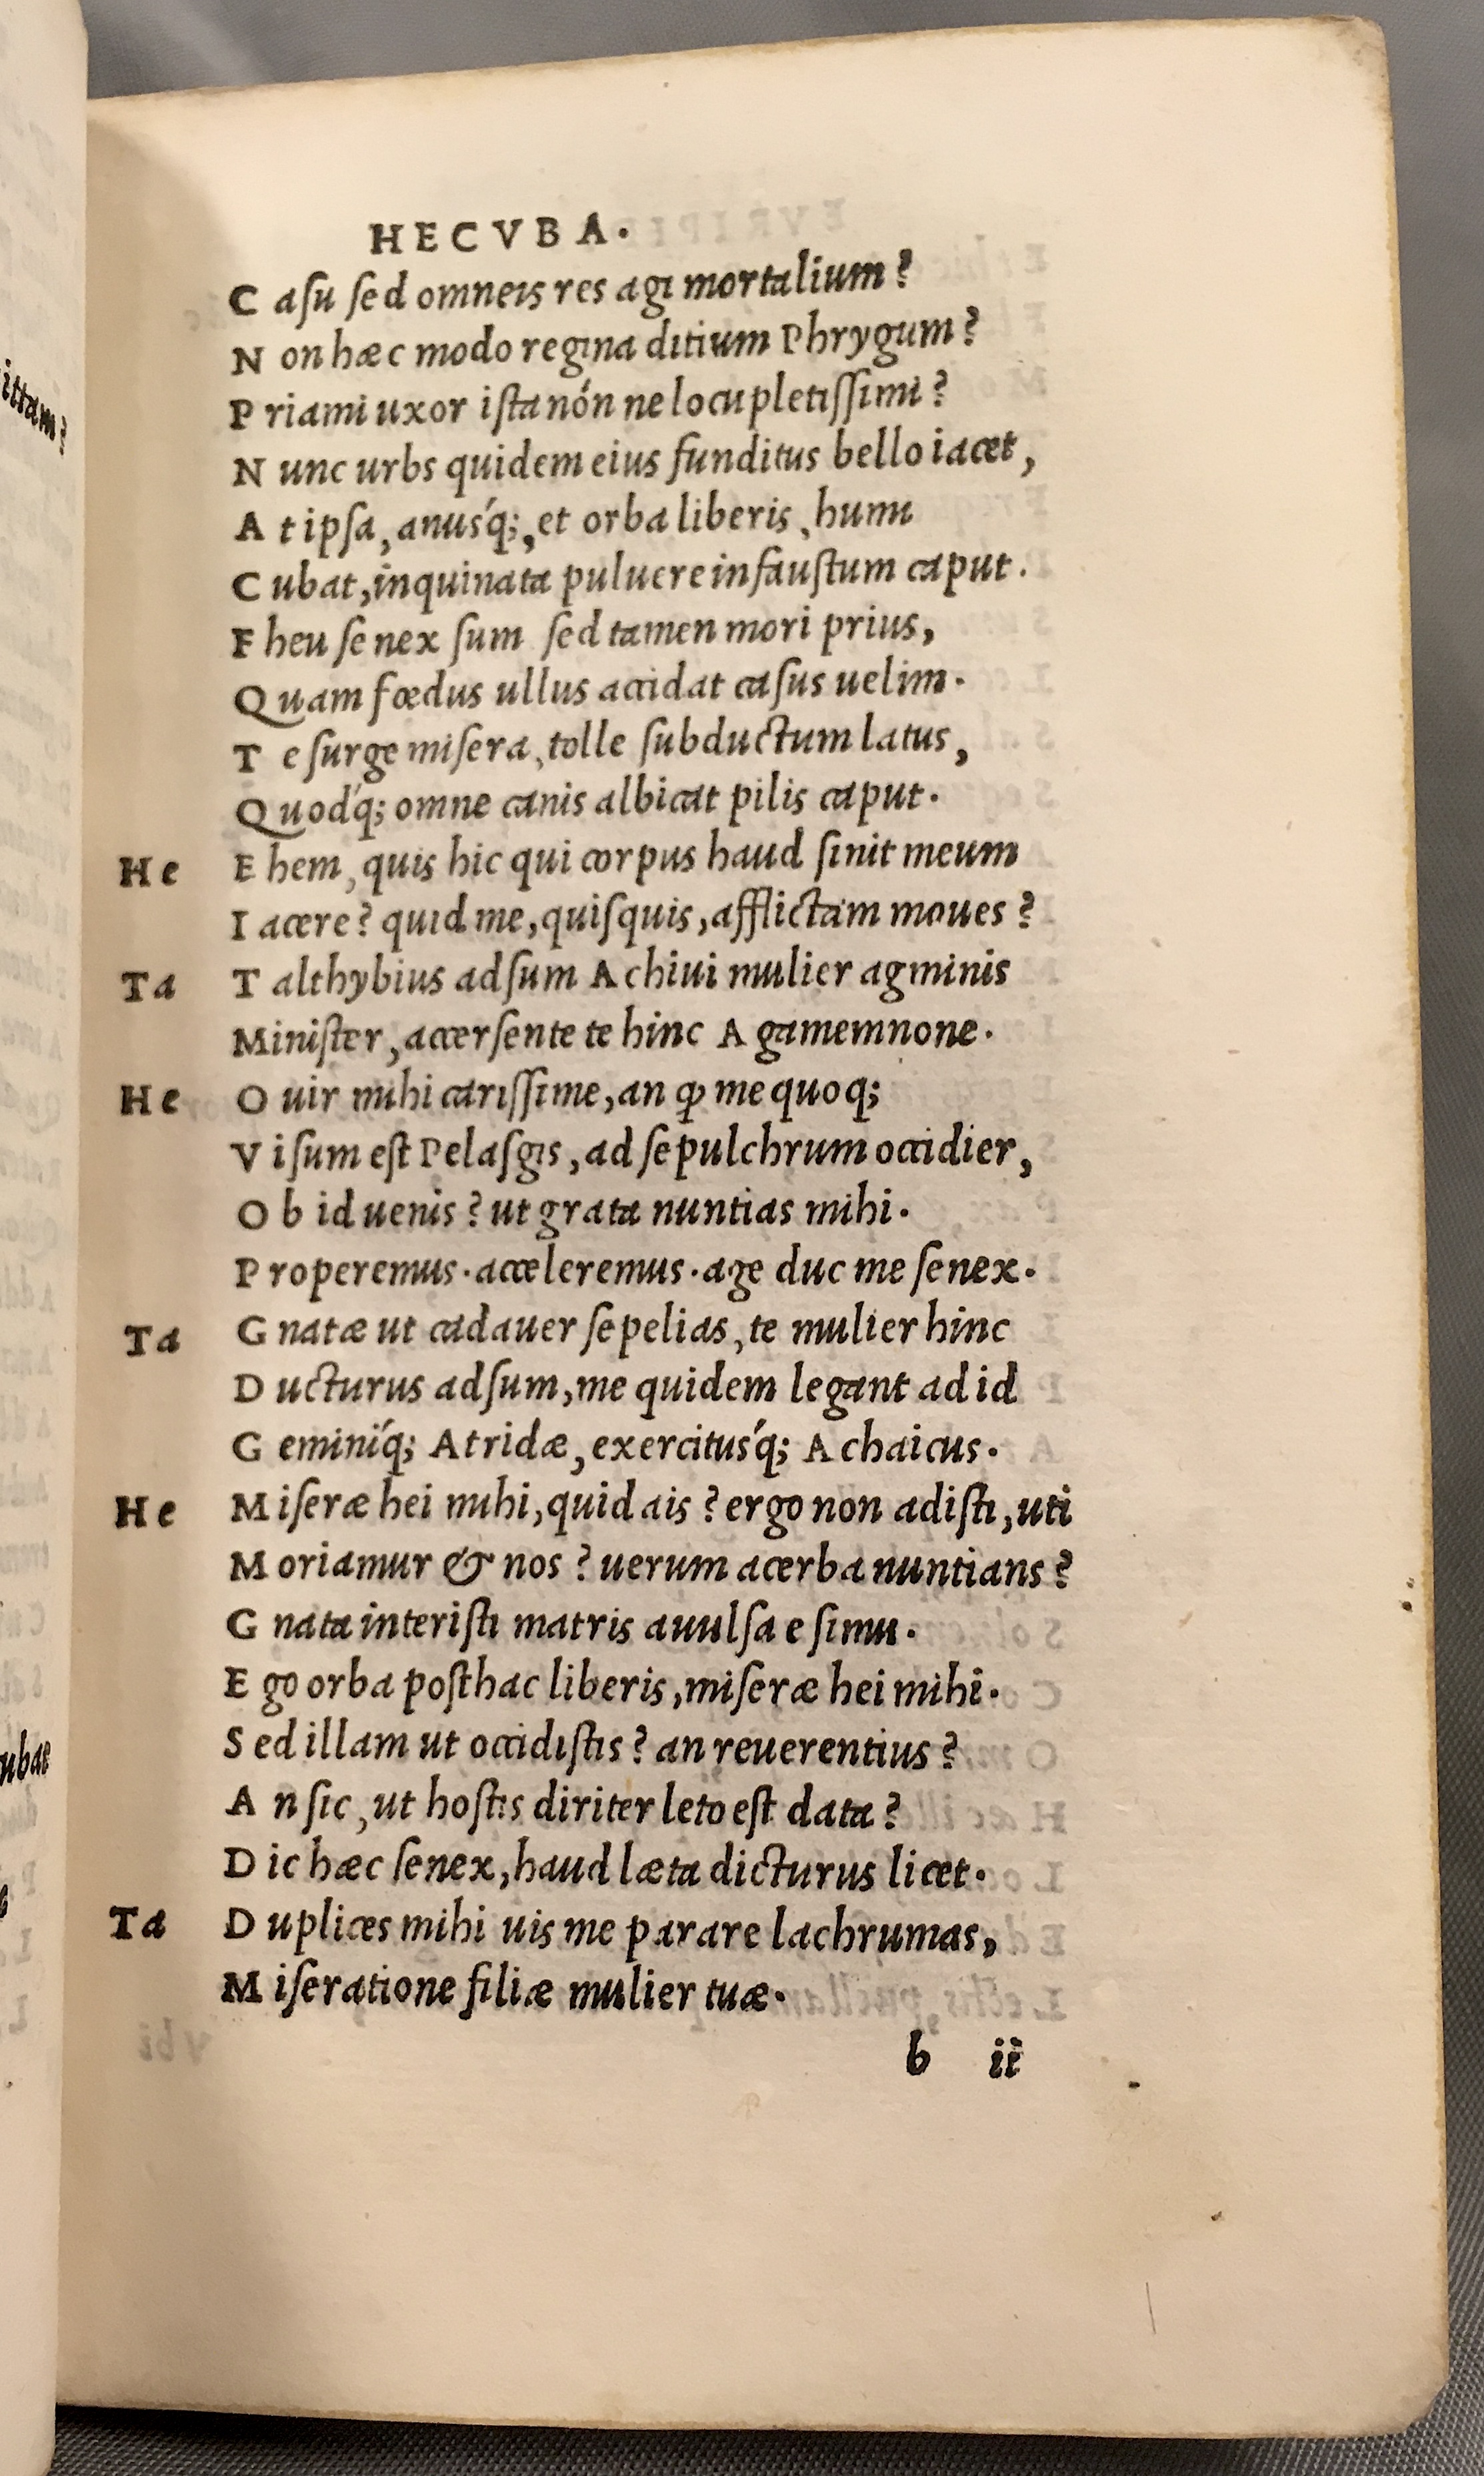 ittam?
ubae
HECVBA.
Casu sed omneis res agi mortalium?
Non hæc modo regina ditium Phrygum?
Priami uxor ista nón ne locupletissimi?
Nunc urbs quidem eius funditus bello iacet,
At ipsa, anusq́;, et orba liberis, humi
Cubat, inquinata puluere infaustum caput.
Eheu senex sum sed tamen mori prius,
Quam fœdus ullus accidat casus uelim.
Te surge misera, tolle subductum latus,
Quodq́; omne canis albicat pilis caput.
He Ehem, quis hic qui corpus haud sinit meum
Iacere? quid me, quisquis, afflictam moues?
Ta Talthybius adsum Achiui mulier agminis
Minister, accersente te hinc Agamemnone.
He O uir mihi carissime, an ꝙ me quoq;
Visum est Pelasgis, ad sepulchrum occidier,
Ob id uenis? ut grata nuntias mihi.
Properemus. acceleremus. age duc me senex.
Ta Gnatæ ut cadauer sepelias, te mulier hinc
Ducturus adsum, me quidem legant ad id
Geminiq́; Atridæ, exercitusq́; Achaicus.
He Miseræ hei mihi, quid ais? ergo non adisti, uti
Moriamur & nos? uerum acerba nuntians?
Gnata interisti matris auulsa e sinu.
Ego orba posthac liberis, miseræ hei mihi.
Sed illam ut occidistis? an reuerentius?
An sic, ut hostis diriter leto est data?
Dic hæc senex, haud læta dicturus licet.
Ta Duplices mihi uis me parare lachrumas,
Miseratione filiæ mulier tuæ.
b ii